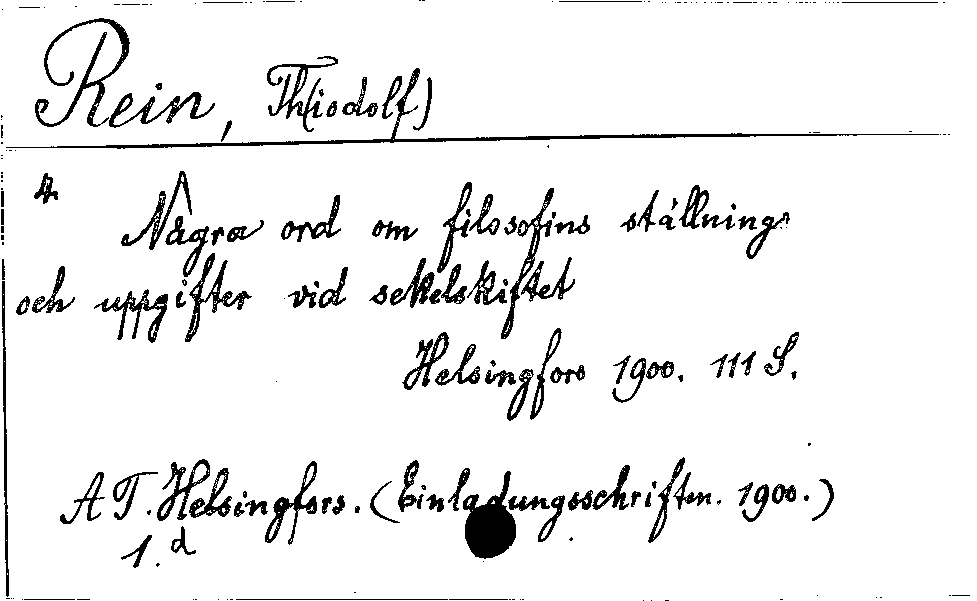 Rein, Th(iodolf)
4.
Några ord om filosofins ställning
och uppgifter vid sekelskiftet
Helsingfors 1900. 111 S.
AT. Helsingfors. (Einladungsschriften. 1900.)
1.d